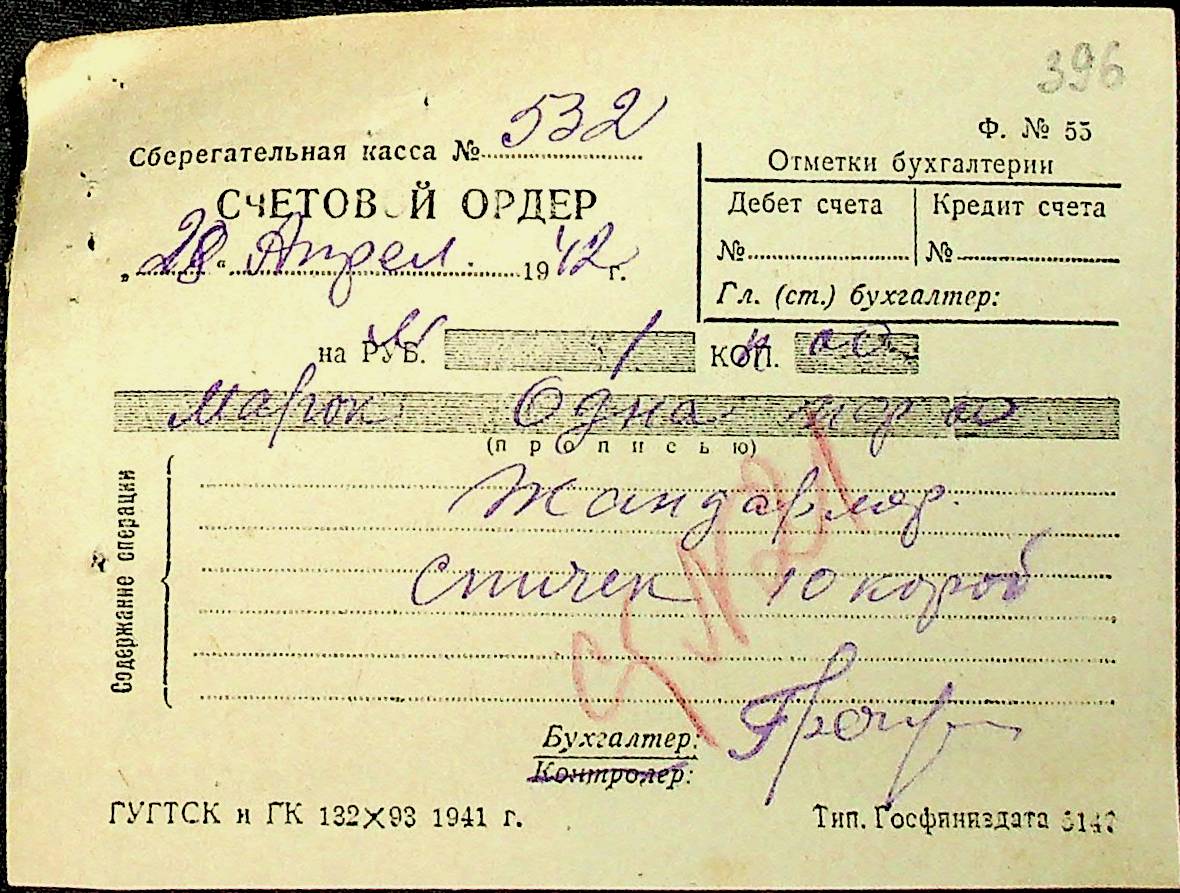 396
Ф. № 55
Сберегательная касса № 532
Отметки бухгалтерии
СЧЕТОВОЙ ОРДЕР
Дебет счета
Кредит счета
№
№
„28“ Апрел. 1942 г.
Гл. (ст.) бухгалтер:
на РУБ. 1 КОП. 00
Марок Одна мар
(прописью)
Содержание операции
Жандармер.
Спичек 10 короб
Бухгалтер:
Контролер:
ГУГТСК и ГК 132X93 1941 г.
Тип. Госфиниздата